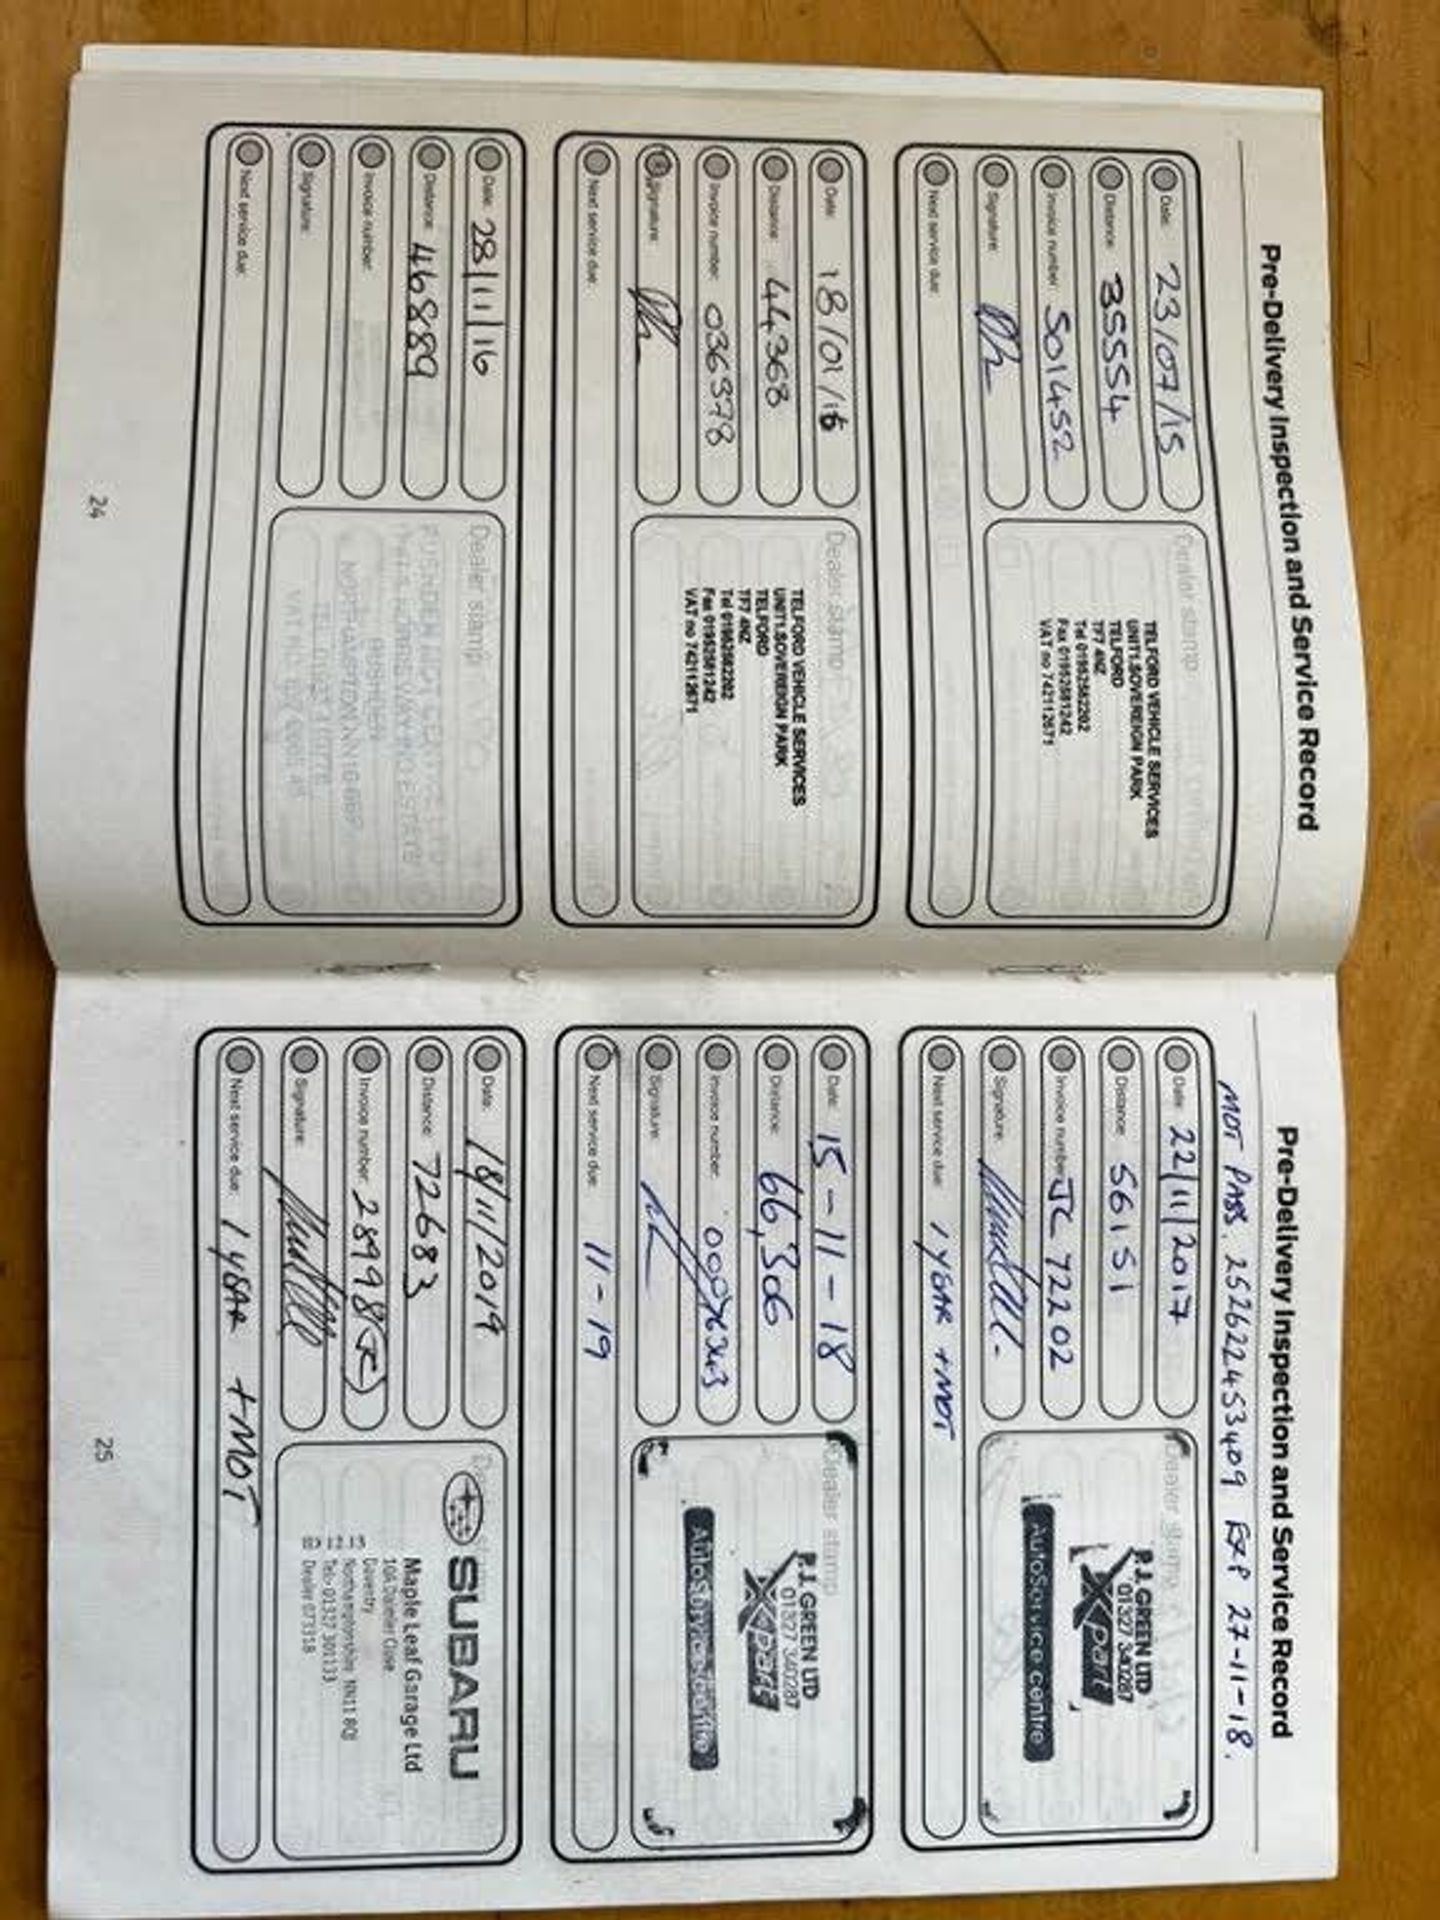 Pre-Delivery Inspection and Service Record
Date: 23/07/15
Distance: 35554
Invoice number: S01452
Signature:
Next service due:
Dealer stamp
TELFORD VEHICLE SERVICES
UNIT1.SOVEREIGN PARK
TELFORD
TF7 4NZ
Tel 01952582202
Fax 01952581242
VAT no 742112671
Date: 18/01/16
Distance: 44368
Invoice number: 036978
Signature:
Next service due:
Dealer stamp
TELFORD VEHICLE SERVICES
UNIT1.SOVEREIGN PARK
TELFORD
TF7 4NZ
Tel 01952582202
Fax 01952581242
VAT no 742112671
Date: 28/11/16
Distance: 46889
Invoice number:
Signature:
Next service due:
Dealer stamp
RUSHDEN
24
Pre-Delivery Inspection and Service Record
MOT PASS. 252622453409 EXP 27-11-18.
Date: 22/11/2017
Distance: 56151
Invoice number: JC 72202
Signature:
Next service due: 1 YEAR + MOT
Dealer stamp
P.J. GREEN LTD
01327 340287
Xpart
AutoService centre
Date: 15-11-18
Distance: 66,306
Invoice number:
Signature:
Next service due: 11-19
Dealer stamp
P.J. GREEN LTD
01327 340287
Xpart
AutoService centre
Date: 18/11/2019
Distance: 72683
Invoice number: 28998
Signature:
Next service due: 1 YEAR + MOT
SUBARU
Maple Leaf Garage Ltd
106 Daimler Close
Daventry
Northamptonshire NN11 8QJ
Tel:- 01327 301133
Dealer 073318
25